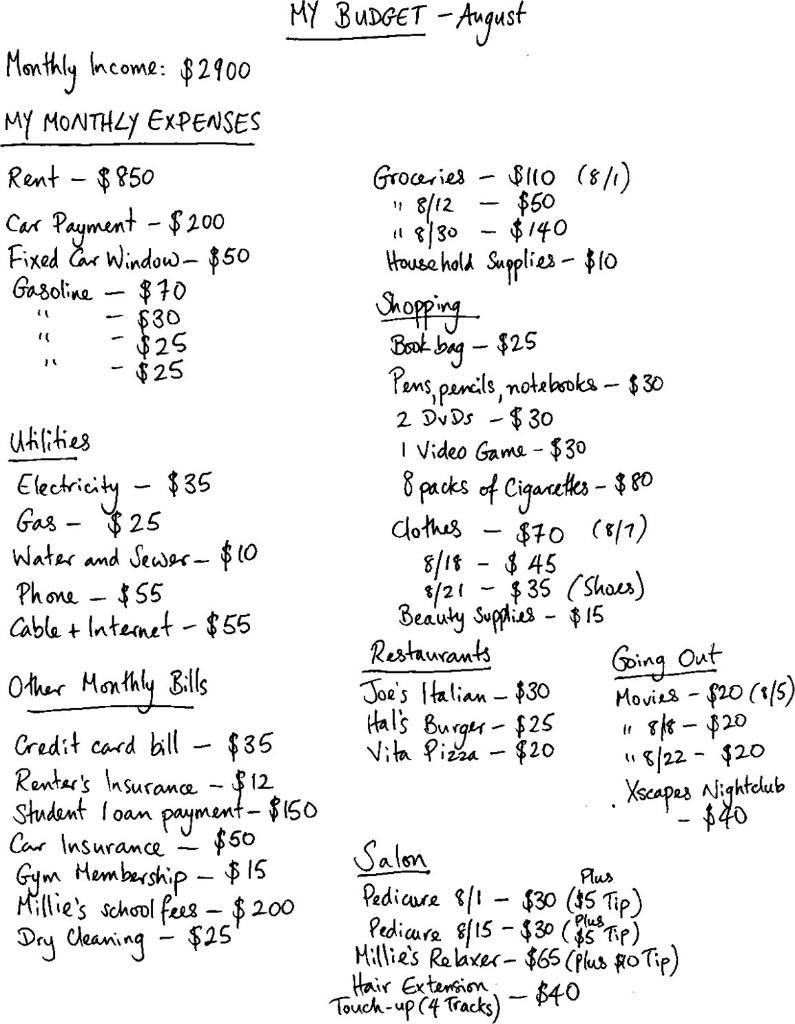 MY BUDGET - August
Monthly Income: $2900
MY MONTHLY EXPENSES
Rent - $850
Car Payment - $200
Fixed Car Window - $50
Gasoline - $70
" - $30
" - $25
" - $25
Utilities
Electricity - $35
Gas - $25
Water and Sewer - $10
Phone - $55
Cable + Internet - $55
Other Monthly Bills
Credit card bill - $35
Renter's Insurance - $12
Student loan payment - $150
Car Insurance - $50
Gym Membership - $15
Millie's school fees - $200
Dry Cleaning - $25
Groceries - $110 (8/1)
" 8/12 - $50
" 8/30 - $140
Household Supplies - $10
Shopping
Book bag - $25
Pens, pencils, notebooks - $30
2 DVDs - $30
1 Video Game - $30
8 packs of Cigarettes - $80
Clothes - $70 (8/7)
8/18 - $45
8/21 - $35 (Shoes)
Beauty Supplies - $15
Restaurants
Joe's Italian - $30
Hal's Burger - $25
Vita Pizza - $20
Going Out
Movies - $20 (8/5)
" 8/8 - $20
" 8/22 - $20
Xscapes Nightclub
- $40
Salon
Pedicure 8/1 - $30 (Plus $5 Tip)
Pedicure 8/15 - $30 (Plus $5 Tip)
Millie's Relaxer - $65 (Plus $10 Tip)
Hair Extension
Touch-up (4 Tracks) - $40